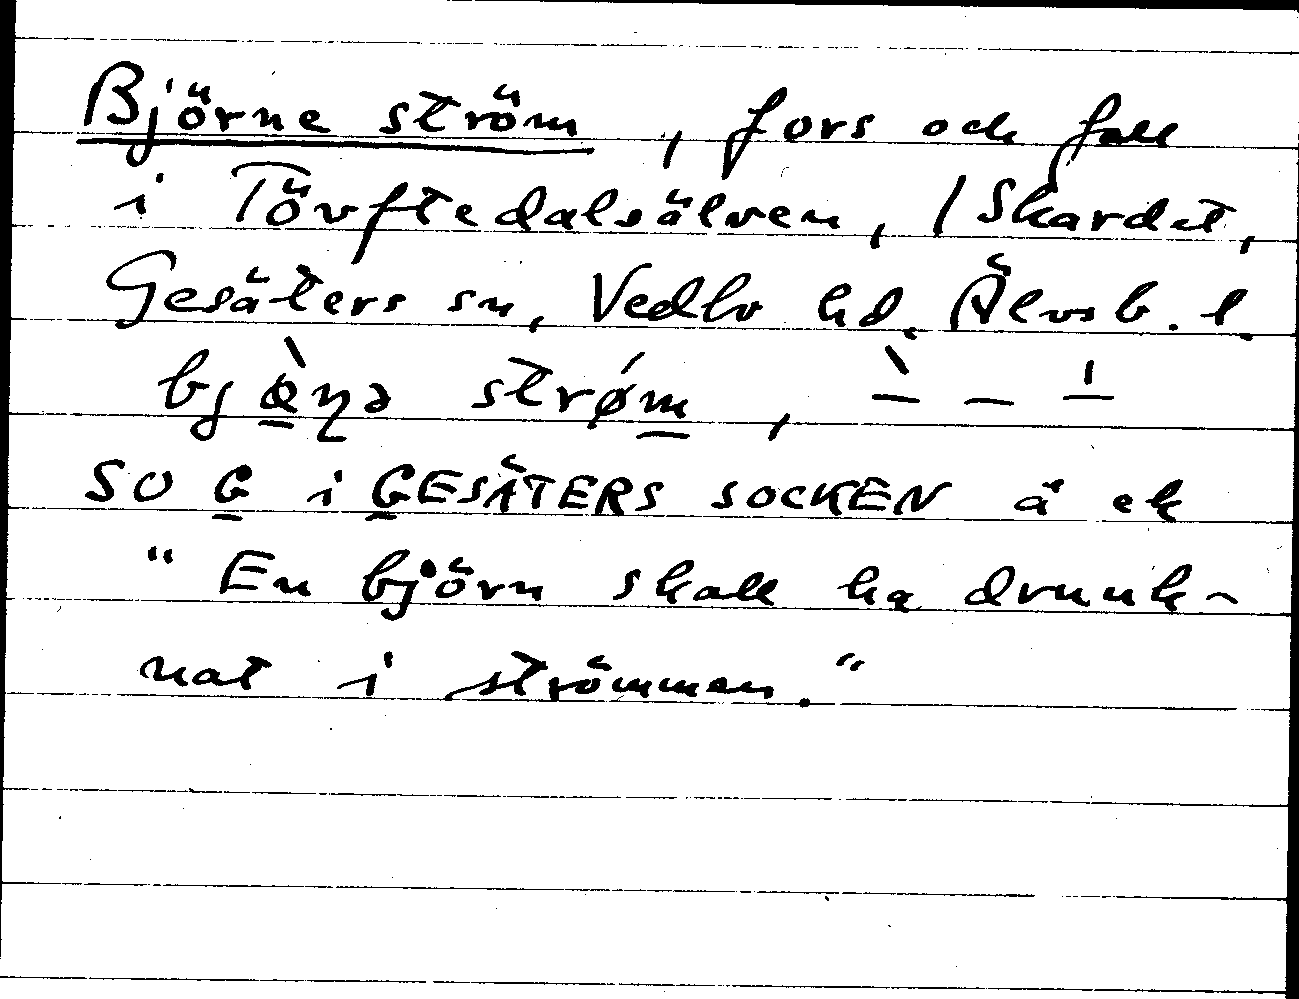 Björne ström, fors och fall
i Tövftedalsälven, / Skardet,
Gesäters sn, Vedbo hd. Älvsb. l.
strøm,
SOG i GESÄTERS SOCKEN ä ek
"En björn skall ha drunk-
nat i strömmen."